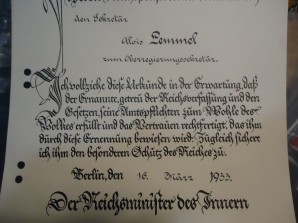 den Sekretär
Alois Lemmel
zum Oberregierungssekretär.
Ich vollziehe diese Urkunde in der Erwartung, daß
der Ernannte, getreu der Reichsverfassung und den
Gesetzen, seine Amtspflichten zum Wohle des
Volkes erfüllt und das Vertrauen rechtfertigt, das ihm
durch diese Ernennung bewiesen wird. Zugleich sichere
ich ihm den besonderen Schutz des Reiches zu.
Berlin, den 16. März 1933.
Der Reichsminister des Innern